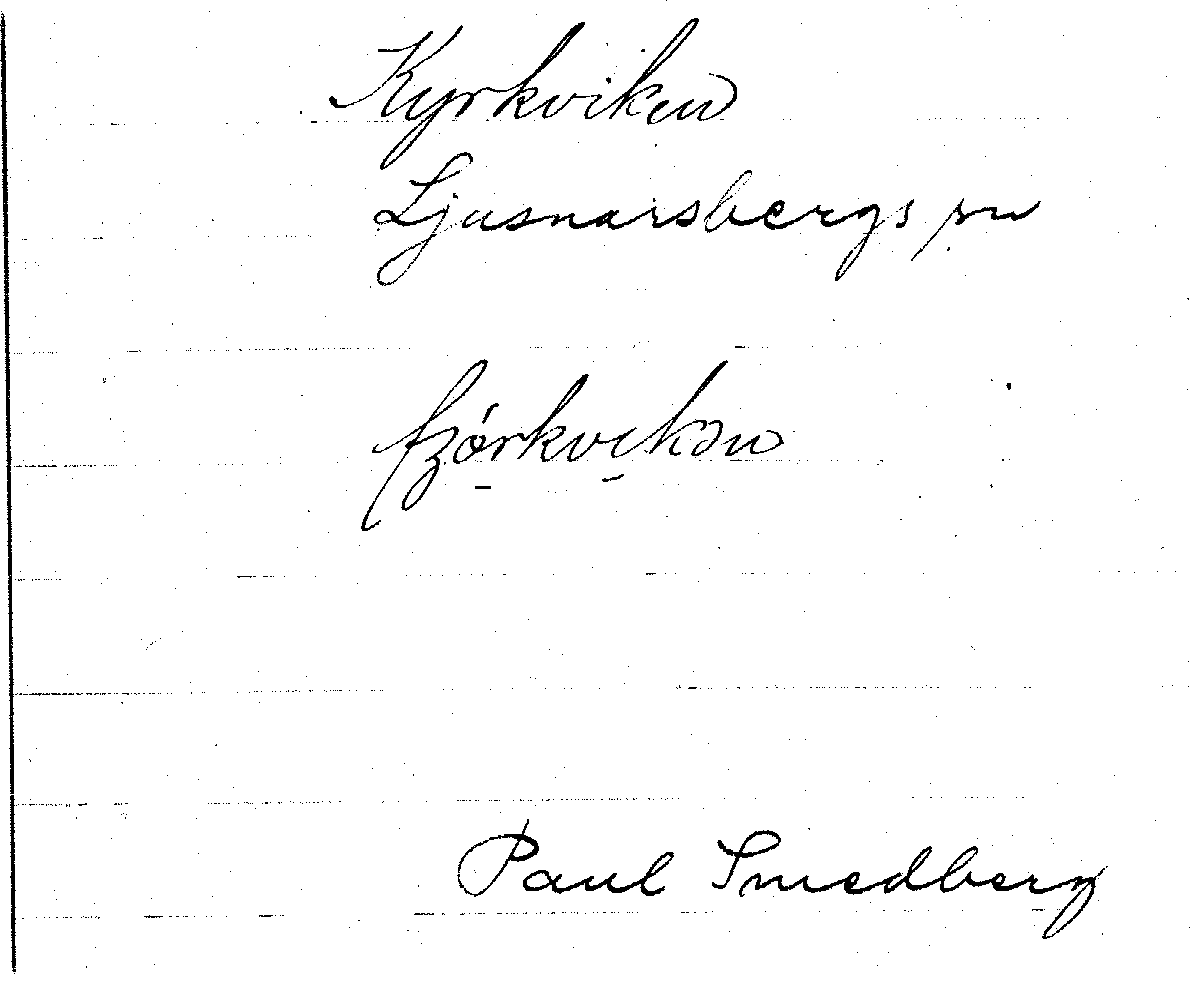 Kyrkviken
Ljusnarsbergs sn
Paul Smedberg